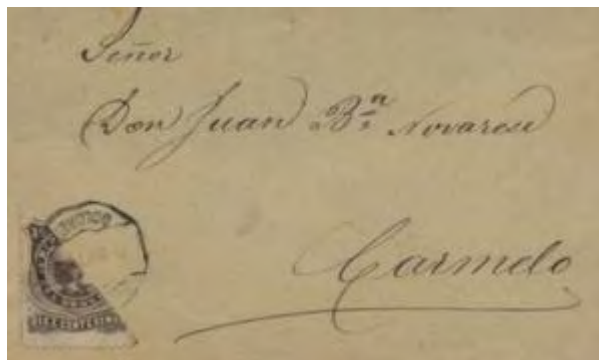 Señor
Don Juan Bn Novarese
Carmelo